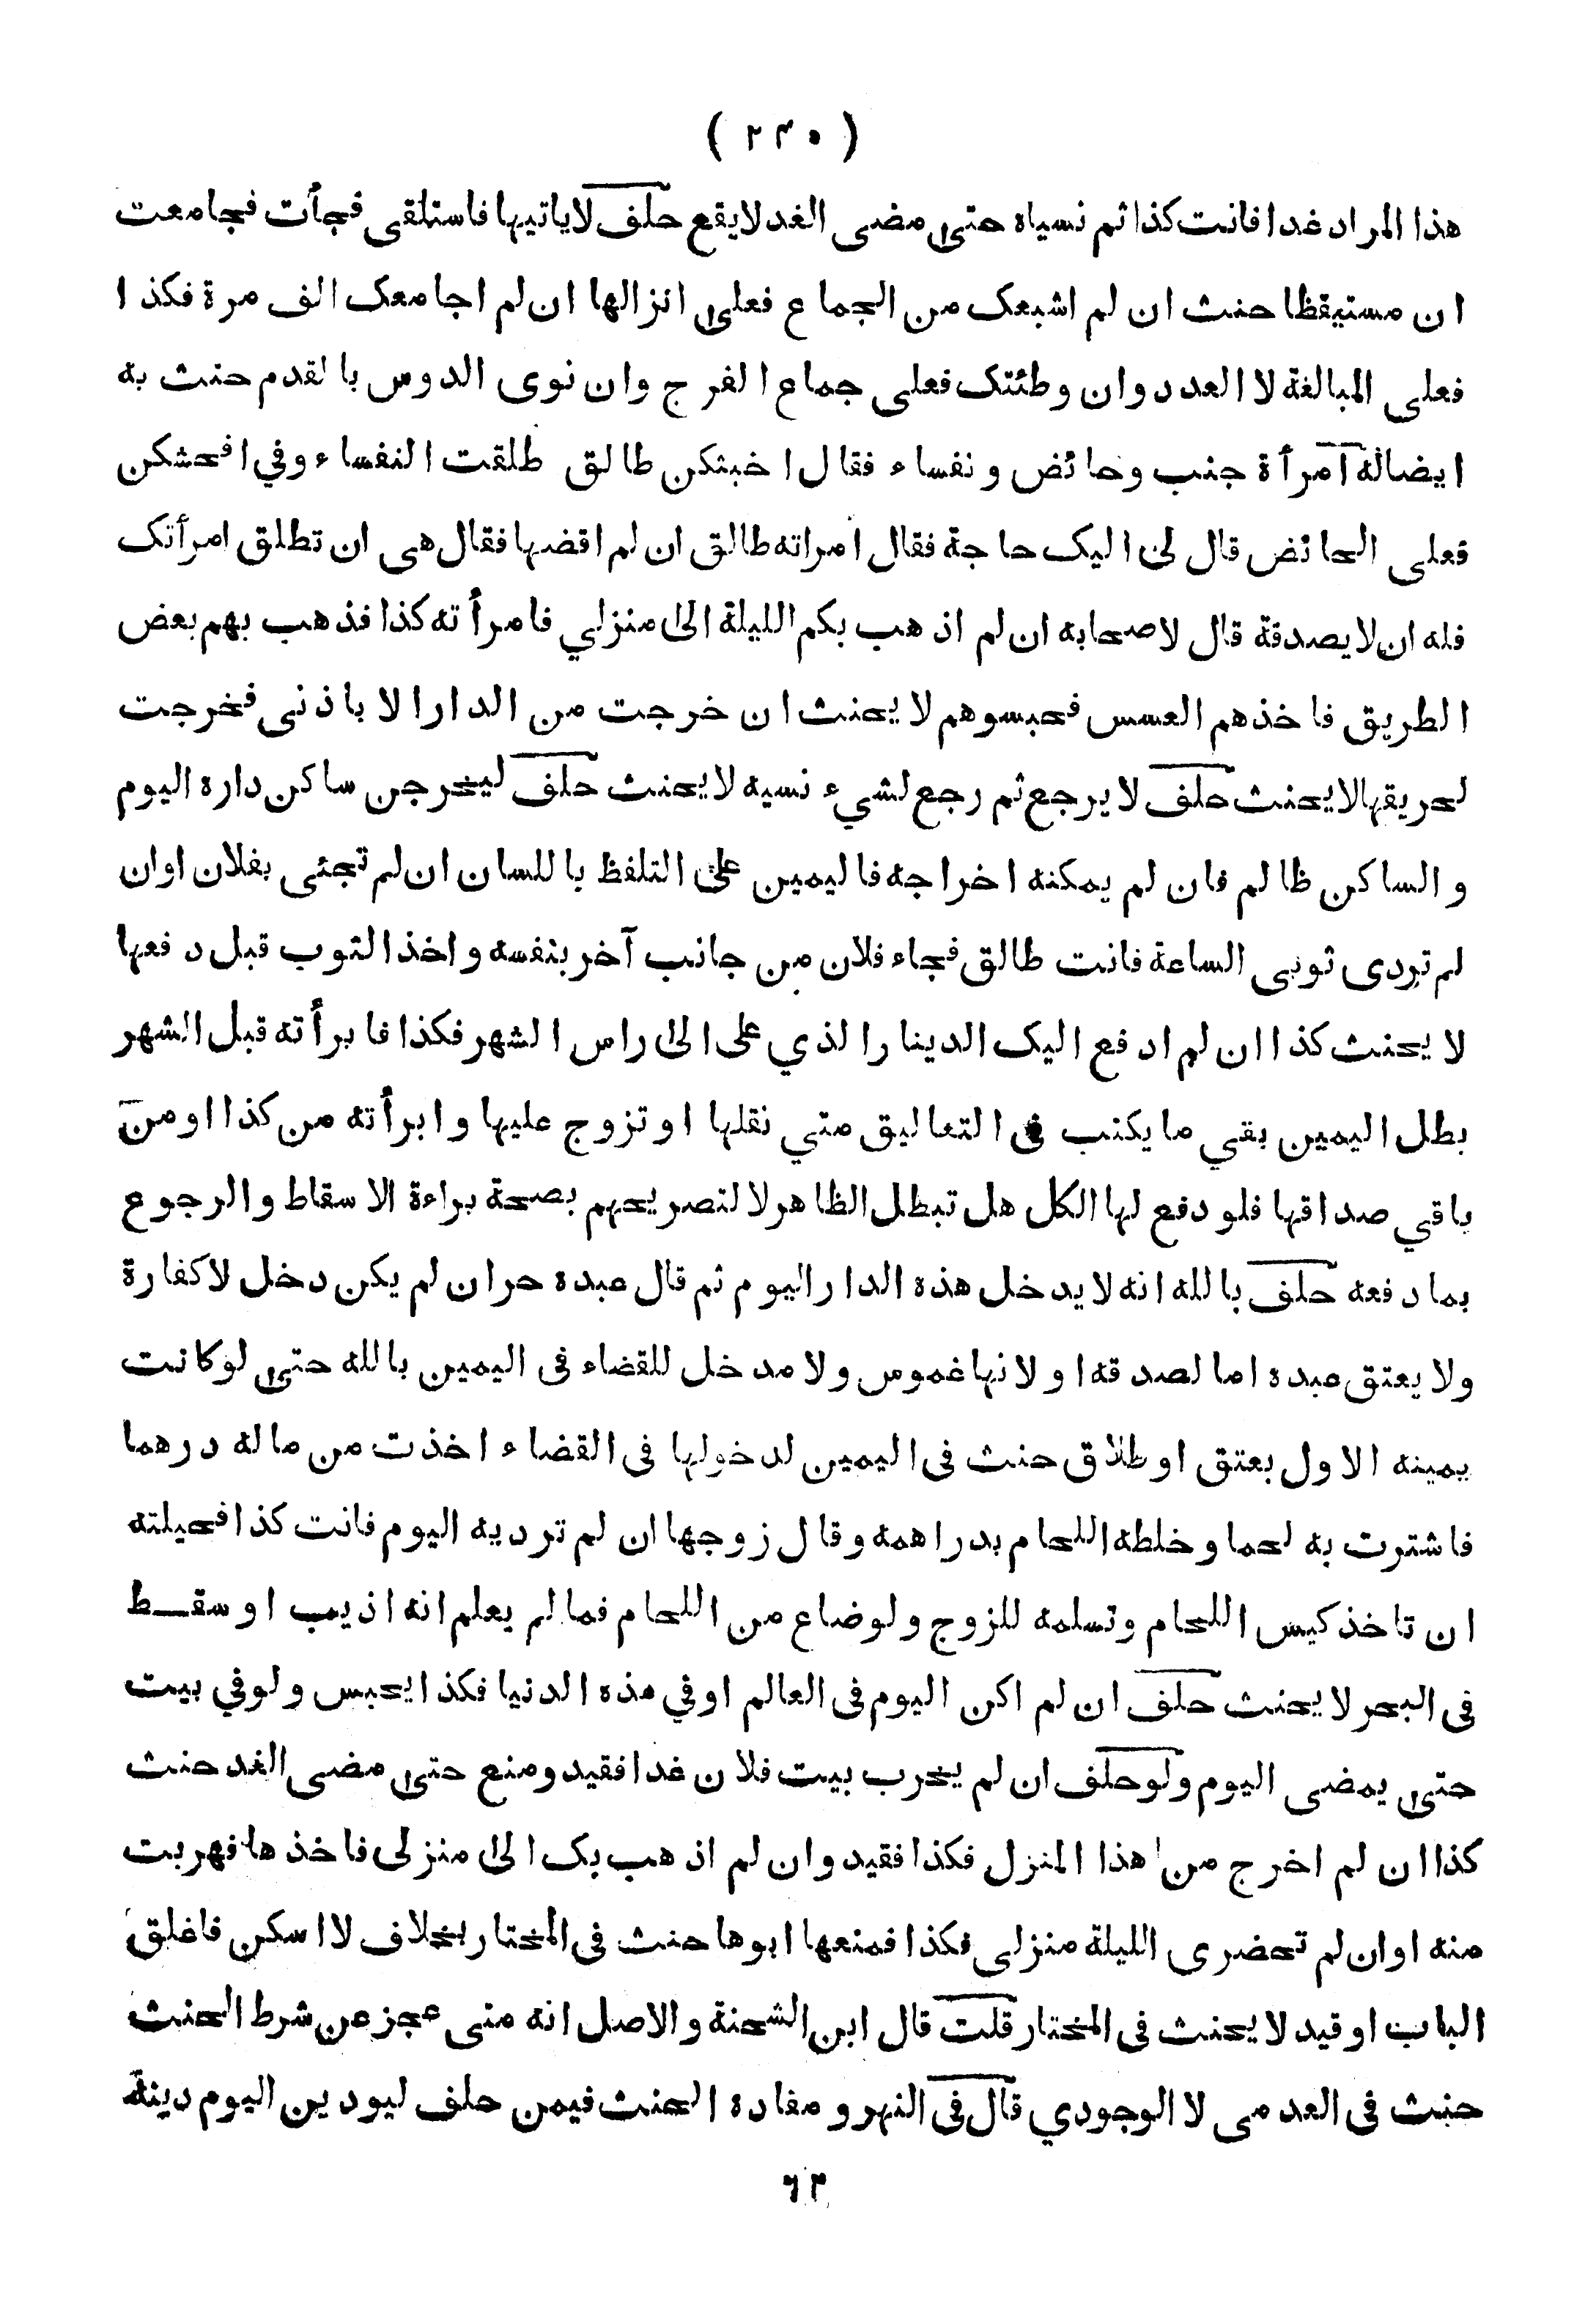 ( ٢٣٠ )
هذا المراد غدا فانت كذا ثم نسياه حتى مضى الغد لا يقع حلف لا ياتيها فاستلقى فجأت فجامعت
ان مستيقظا حنث ان لم اشبعک من الجماع فعلى انزالها ان لم اجامعک الف مرة فكذا
فعلى المبالغة لا العدد وان وطئتک فعلى جماع الفرج وان نوى الدوس بالقدم حنث به
ايضا له امرأة جنب وحائض ونفساء فقال اخبثكن طالق طلقت النفساء وفي افحشكن
فعلى الحائض قال لى اليک حاجة فقال امراته طالق ان لم اقضها فقال هى ان تطلق امرأتک
فله ان لا يصدقة قال لاصحابه ان لم اذهب بكم الليلة الى منزلي فامرأته كذا فذهب بهم بعض
الطريق فاخذهم العسس فحبسوهم لا يحنث ان خرجت من الدار الا باذنى فخرجت
لحريقها لا يحنث حلف لا يرجع ثم رجع لشيء نسيه لا يحنث حلف ليخرجن ساكن داره اليوم
والساكن ظالم فان لم يمكنه اخراجه فاليمين على التلفظ باللسان ان لم تجئى بفلان اوان
لم تردى ثوبى الساعة فانت طالق فجاء فلان من جانب آخر بنفسه واخذ الثوب قبل دفعها
لا يحنث كذا ان لم ادفع اليک الدينار الذي على الى راس الشهر فكذا فابرأته قبل الشهر
بطل اليمين بقي ما يكتب فى التعاليق متي نقلها او تزوج عليها وابرأته من كذا اومن
باقي صداقها فلو دفع لها الكل هل تبطل الظاهر لا لتصريحهم بصحة براءة الاسقاط والرجوع
بما دفعه حلف بالله انه لا يدخل هذه الدار اليوم ثم قال عبده حر ان لم يكن دخل لا كفارة
ولا يعتق عبده اما لصدقه او لانها غموس ولا مدخل للقضاء فى اليمين بالله حتى لو كانت
يمينه الاول بعتق او طلاق حنث فى اليمين لدخولها فى القضاء اخذت من ماله درهما
فاشترت به لحما وخلطه اللحام بدراهمه وقال زوجها ان لم ترديه اليوم فانت كذا فحيلته
ان تاخذ كيس اللحام وتسلمه للزوج ولو ضاع من اللحام فما لم يعلم انه اذيب او سقط
فى البحر لا يحنث حلف ان لم اكن اليوم فى العالم اوفي هذه الدنيا فكذا يحبس ولوفي بيت
حتى يمضى اليوم ولو حلف ان لم يخرب بيت فلان غدا فقيد ومنع حتى مضى الغد حنث
كذا ان لم اخرج من هذا المنزل فكذا فقيد وان لم اذهب بک الى منزلى فاخذها فهربت
منه اوان لم تحضرى الليلة منزلى فكذا فمنعها ابوها حنث فى المختار بخلاف لا اسكن فاغلق
الباب او قيد لا يحنث فى المختار قلت قال ابن الشحنة والاصل انه متى عجز عن شرط الحنث
حنث فى العدمى لا الوجودي قال فى النهر ومفاده الحنث فيمن حلف ليودين اليوم دينه